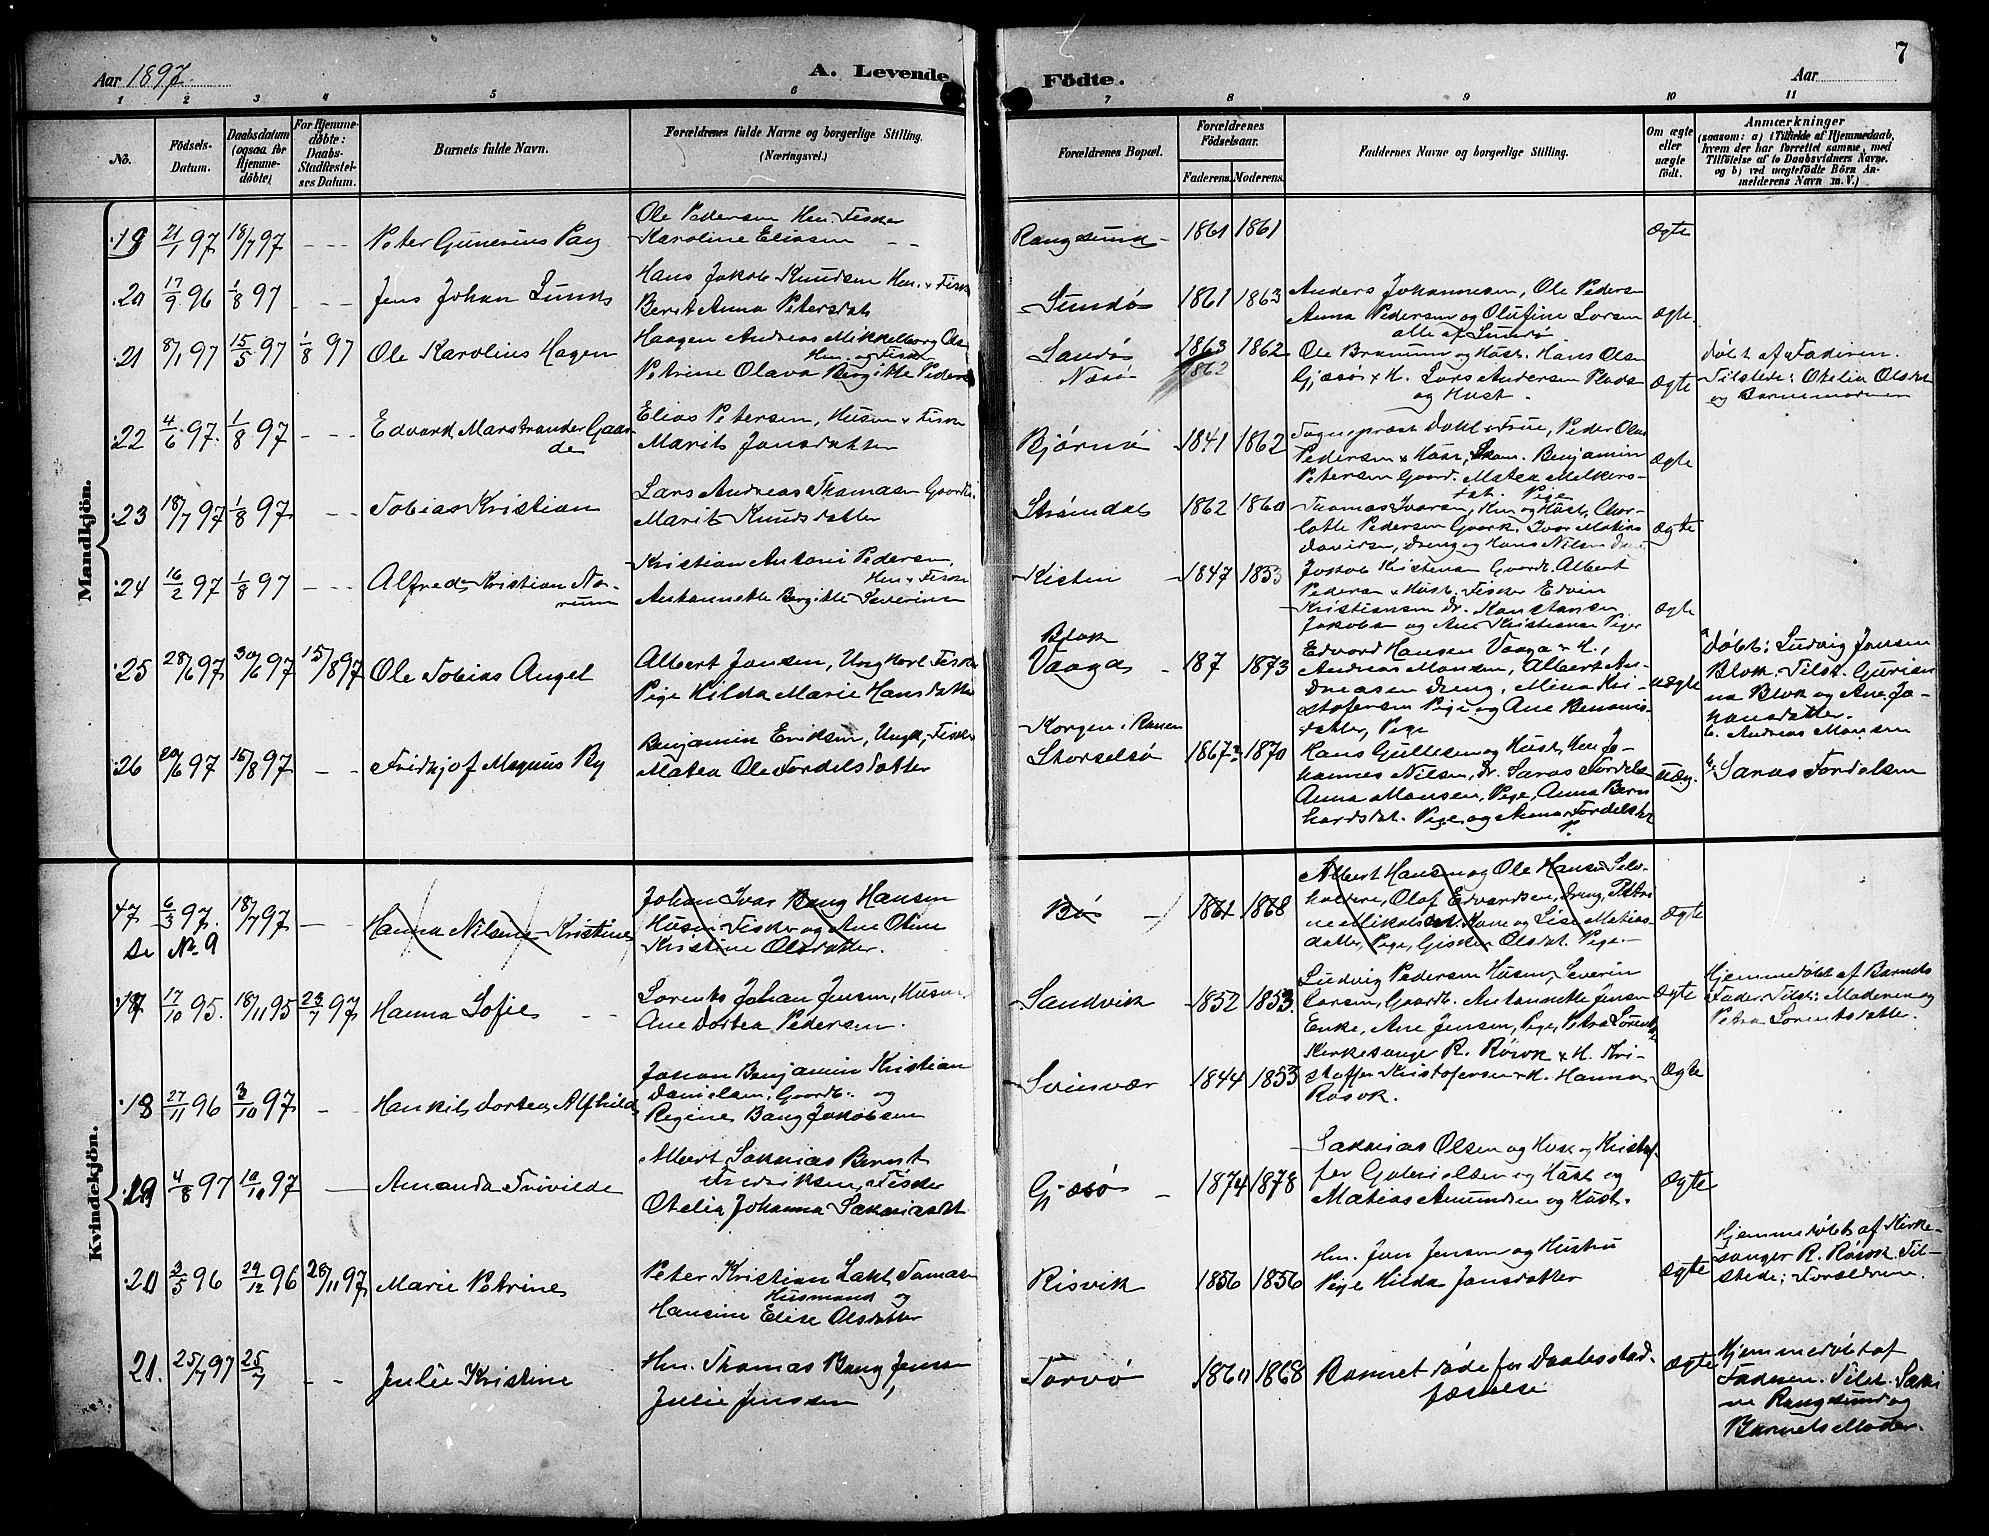 7
Aar 1897
A. Levende Födte.
Aar
1 2 3 4 5 6 7 8 9 10 11
No.
Födsels-Datum.
Daabsdatum (ogsaa for Hjemme-döbte)
For Hjemme-döbte: Daabs-Stadfæstel-ses Datum.
Barnets fulde Navn.
Forældrenes fulde Navne og borgerlige Stilling. (Næringsvei.)
Forældrenes Bopæl.
Forældrenes Födselsaar.
Faderens. Moderens.
Faddernes Navne og borgerlige Stilling.
Om ægte eller uægte födt.
Anmærkninger
(saasom: a) i Tilfælde af Hjemmedaab, hvem der har forrettet samme, med Tilföielse af to Daabsvidners Navne. og b) ved uægtefödte Börn An-melderens Navn m. V.)
Mandkjön.
19 21/1 97 18/7 97 - - - Peter Gunerius Pay
Ole Pedersen Hm. Fisker
Karoline Eliasen - -
Rangsund - 1861 1861 ægte
20 17/9 96 1/8 97 - - - Jens Johan Lunds
Hans Jakob Knudsen Hm. & Fisker
Berit Anna Petersdat
Sundø 1861 1863
Anders Johannesen, Ole Pedersen
Anna Pedersen og Olufine Larsen
alle af Sundø
ægte
21 8/1 97 15/5 97 1/8 97 Ole Karolius Hagen
Haagen Andreas Mikkelborg Ols
Hm. og Fisker
Petrine Olava Bergitte Peders
Sandø Næsø 1863 1862 1862
Ole Brunum og Hust. Hans Olsen
Gjæsø & H. Lars Andersen Plads
og Hust.
ægte
Døbt af Faderen.
Tilstede: Otelia Olsdat
og Barnemoderen
22 4/6 97. 1/8 97 - - - Edvard Marstrander Gaar
de
Elias Petersen, Husm & Fisker
Marit Jonsdatter
Bjørnø 1841 1862
Sognepræst Dahl & Frue, Peder Olai
Pedersen & Hust, Skom. Benjamin
Petersen Gaard. Matea Melkers-
dat. Pige
ægte
23 18/7 97 1/8 97 - - Tobias Kristian
Lars Andreas Thomasen Gaardb.
Marit Knudsdatter
Strømdal 1862 1860
Thomas Ivarsen, Hm og Hust, Char-
lotte Pedersen Gaardk. Ivar Matias
Davidsen, Dreng og Hans Nilsen Dreng
ægte
24 16/2 97 1/8 97 - - - Alfred Kristian No-
rum
Kristian Antoni Pedersen
Hm & Fisker
Antonnette Bergitte Severinsen
Kisten - 1847 1853
Jakob Kristensen Gaardb. Albert
Pedersen & Hust. Fisker Edvin
Kristiansen Dr. Konstanse
Jakobsen og Ane Kristianse Piger
ægte
25 28/6 97 30/6 97 15/8 97 Ole Tobias Angel
Albert Jonsen, Ungkarl Fisker
Pige Hilda Marie Hansdatter
Blok
Vaaga - 187 1873
Edvard Hansen Vaaga & H.,
Andreas Monsen, Albert An-
dreasen Dreng, Mina Kri-
stofersen Pige og Ane Benonis-
datter, Pige
uægte
a Døbt: Ludvig Jensen
Blok. Tilst. Gurian
na Blok og Ane Jo-
hansdatter.
b. Andreas Monsen
26 20/6 97 15/8 97 - - Fridhjof Magnus By
Benjamin Eriksen, Ungk, Fisker
Matea Ole Fordelsdatter
Korgen i Ranen
Storselsø 1867? 1870
Hans Gullesen og Hust, Hm Jo-
hannes Nilsen, Dr. Saras Fordelsen
Anna Monsen, Pige, Anna Bern
hardsdat. Pige og Anna Fordelsdat
P.
uæg.
b. Saras Fordelsen
Kvindekjön.
17 6/3 97. 18/7 97 - - Hanna Nilsine Kristine
Se No 9
Johan Ivar Bang Hansen
Husm Fisker og Ane Oline
Kristine Olsdatter.
Bøs - 1861 1868
Albert Hansen og Ole Hansen Selv-
holdere, Olaf Edvardsen, Dreng, Petri
ne Mikalsdat. Kone og Lise Matias-
datter, Pige, Gisken Olsdat. Pige.
ægte
17 17/10 95. 18/11 95 23/7 97 Hanna Sofie - -
Lorents Johan Jensen, Husm
Ane Dortea Pedersen.
Sandvik 1852 1853.
Ludvig Pedersen Husm, Severin
Larsen, Gaardb. Antonnette Jensen
Enke, Ane Jensen, Pige, Petra Lorents
ægte
Hjemmedøbt af Barnets
Fader. Tilst: Moderen og
Petra Lorentsdatte.
18 27/11 96 3/10 97 - - Hankil Dortea Alfhild
Johan Benjamin Kristian
Danielsen, Gaardb. og
Regine Bang Jakobsen
Svinsvær 1844 1853
Kirkesanger R. Røsok & H. Kri-
stoffer Kristofersen & H. Hanna
Røsok.
Ægte
19 4/8 97 10/10 97 — Amanda Trivilde
Albert Sakrias Bernt
Fredriksen, Fisker
Otelia Johanna Sakariasdt
Gjæsø - 1874 1878
Sakrias Olsen og Hust og Kristof-
fer Gabrielsen og Hust og
Matias Amundsen og Hust.
Ægte
20 3/5 96 29/12 96 28/11 97 Marie Petrine
Peter Kristian Lakl. Tomasen
Husmand og
Hansine Elise Olsdatter
Risvik 1856 1856
Hm. Jon Jensen og Hustru
Pige Hilda Jonsdatter
Ægte
Hjemmedøbt af Kirke-
sanger R. Røsok. Til-
stede: Forældrene.
21. 25/7 97 25/7 - - Julie Kristine
Hm. Thomas Bang Jensen
Julie Jenssen
Torvø 1860 1868
Barnet døde før Daabsstad-
fæstelse
Ægte
Hjemmedøbt af
Faderen. Tilst. Saki
ne Rangsund og
Barnets Moder.